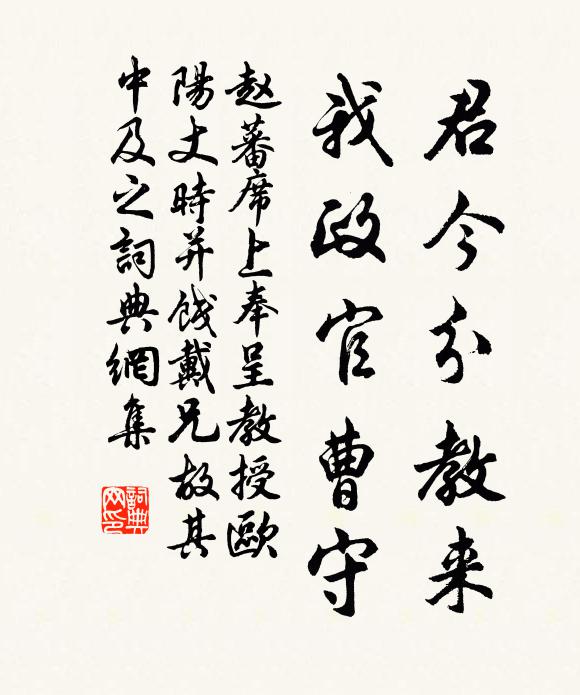 君今分教来
我政官曹守
赵蕃席上奉呈教授歐
陽丈時并餞戴兄故其
中及之詞典網集
詞典
网印